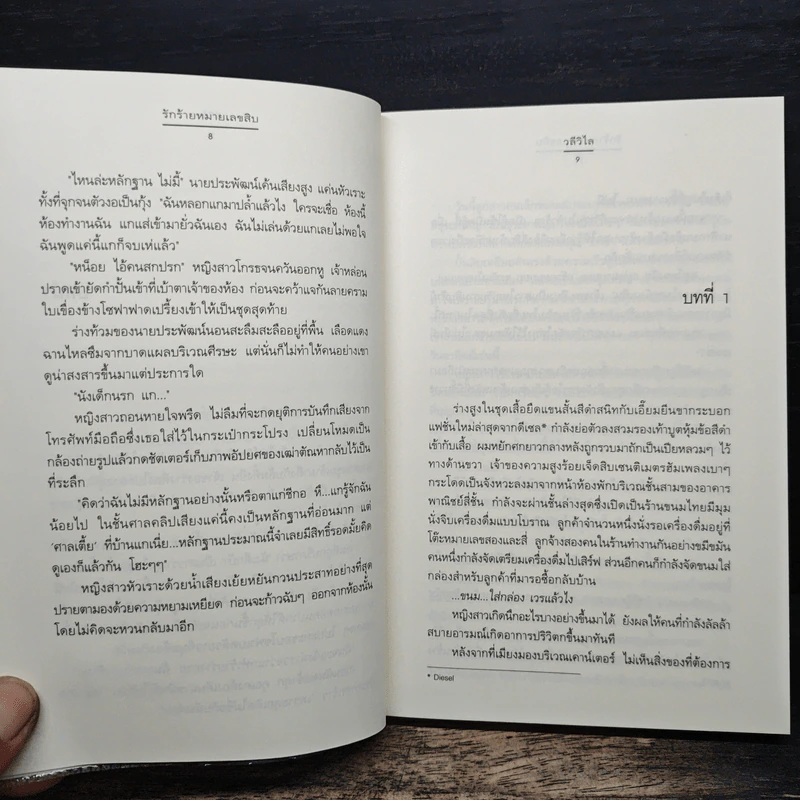 รักร้ายหมายเลขสิบ
8
"ไหนล่ะหลักฐาน ไม่มี้" นายประพัฒน์เค้นเสียงสูง แค่นหัวเราะ
ทั้งที่จุกจนตัวงอเป็นกุ้ง "ฉันหลอกแกมาปล้ำแล้วไง ใครจะเชื่อ ห้องนี้
ห้องทำงานฉัน แกแส่เข้ามายั่วฉันเอง ฉันไม่เล่นด้วยแกเลยไม่พอใจ
ฉันพูดแค่นี้แกก็จบเห่แล้ว"
"หน็อย ไอ้คนสกปรก" หญิงสาวโกรธจนควันออกหู เจ้าหล่อน
ปราดเข้ายัดกำปั้นเข้าที่เบ้าตาเจ้าของห้อง ก่อนจะคว้าแจกันลายคราม
ใบเขื่องข้างโซฟาฟาดเปรี้ยงเข้าให้เป็นชุดสุดท้าย
ร่างท้วมของนายประพัฒน์นอนสะลึมสะลืออยู่ที่พื้น เลือดแดง
ฉานไหลซึมจากบาดแผลบริเวณศีรษะ แต่นั่นก็ไม่ทำให้คนอย่างเขา
ดูน่าสงสารขึ้นมาแต่ประการใด
"นังเด็กนรก แก..."
หญิงสาวถอนหายใจพรืด ไม่ลืมที่จะกดยุติการบันทึกเสียงจาก
โทรศัพท์มือถือซึ่งเธอใส่ไว้ในกระเป๋ากระโปรง เปลี่ยนโหมดเป็น
กล้องถ่ายรูปแล้วกดชัตเตอร์เก็บภาพอัปยศของเฒ่าตัณหากลับไว้เป็น
ที่ระลึก
"คิดว่าฉันไม่มีหลักฐานอย่างนั้นหรือตาแก่ชีกอ หึ...แกรู้จักฉัน
น้อยไป ในชั้นศาลคลิปเสียงแค่นี้คงเป็นหลักฐานที่อ่อนมาก แต่
'ศาลเตี้ย' ที่บ้านแกเนี่ย...หลักฐานประมาณนี้จำเลยมีสิทธิ์รอดมั้ยคิด
ดูเองก็แล้วกัน โฮะๆๆ"
หญิงสาวหัวเราะด้วยน้ำเสียงเย้ยหยันกวนประสาทอย่างที่สุด
ปรายตามองด้วยความหยามเหยียด ก่อนจะก้าวฉับๆ ออกจากห้องนั้น
โดยไม่คิดจะหวนกลับมาอีก
วลีวิไล
9
บทที่ 1
ร่างสูงในชุดเสื้อยืดแขนสั้นสีดำสนิทกับเอี๊ยมยีนขากระบอก
แฟชั่นใหม่ล่าสุดจากดีเซล* กำลังย่อตัวลงสวมรองเท้าบูตหุ้มข้อสีดำ
เข้ากับเสื้อ ผมหยักศกยาวกลางหลังถูกรวบมาถักเป็นเปียหลวมๆ ไว้
ทางด้านขวา เจ้าของความสูงร้อยเจ็ดสิบเซนติเมตรฮัมเพลงเบาๆ
กระโดดเป็นจังหวะลงมาจากหน้าห้องพักบริเวณชั้นสามของอาคาร
พาณิชย์สี่ชั้น กำลังจะผ่านชั้นล่างสุดซึ่งเปิดเป็นร้านขนมไทยมีมุม
นั่งจิบเครื่องดื่มแบบโบราณ ลูกค้าจำนวนหนึ่งนั่งรอเครื่องดื่มอยู่ที่
โต๊ะหมายเลขสองและสี่ ลูกจ้างสองคนในร้านทำงานกันอย่างขมีขมัน
คนหนึ่งกำลังจัดเตรียมเครื่องดื่มไปเสิร์ฟ ส่วนอีกคนก็กำลังจัดขนมใส่
กล่องสำหรับลูกค้าที่มารอซื้อกลับบ้าน
...ขนม...ใส่กล่อง เวรแล้วไง
หญิงสาวเกิดนึกอะไรบางอย่างขึ้นมาได้ ยังผลให้คนที่กำลังลัลล้า
สบายอารมณ์เกิดอาการปริวิตกขึ้นมาทันที
หลังจากที่เมียงมองบริเวณเคาน์เตอร์ ไม่เห็นสิ่งของที่ต้องการ
* Diesel